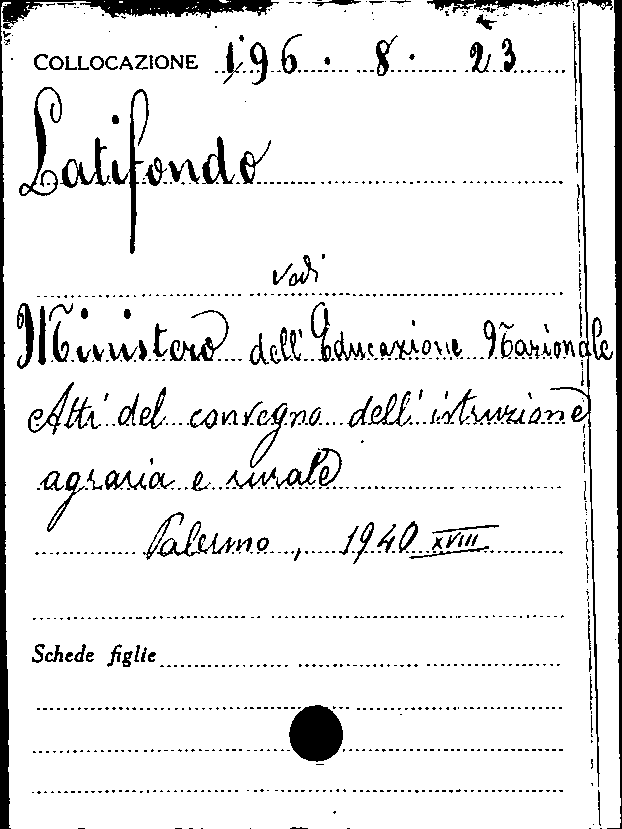 COLLOCAZIONE 196. 8. 23
Latifondo
vedi
Ministero dell'Educazione Nazionale
Atti del convegno dell'istruzione
agraria e rurale
Palermo, 1940 XVIII
Schede figlie